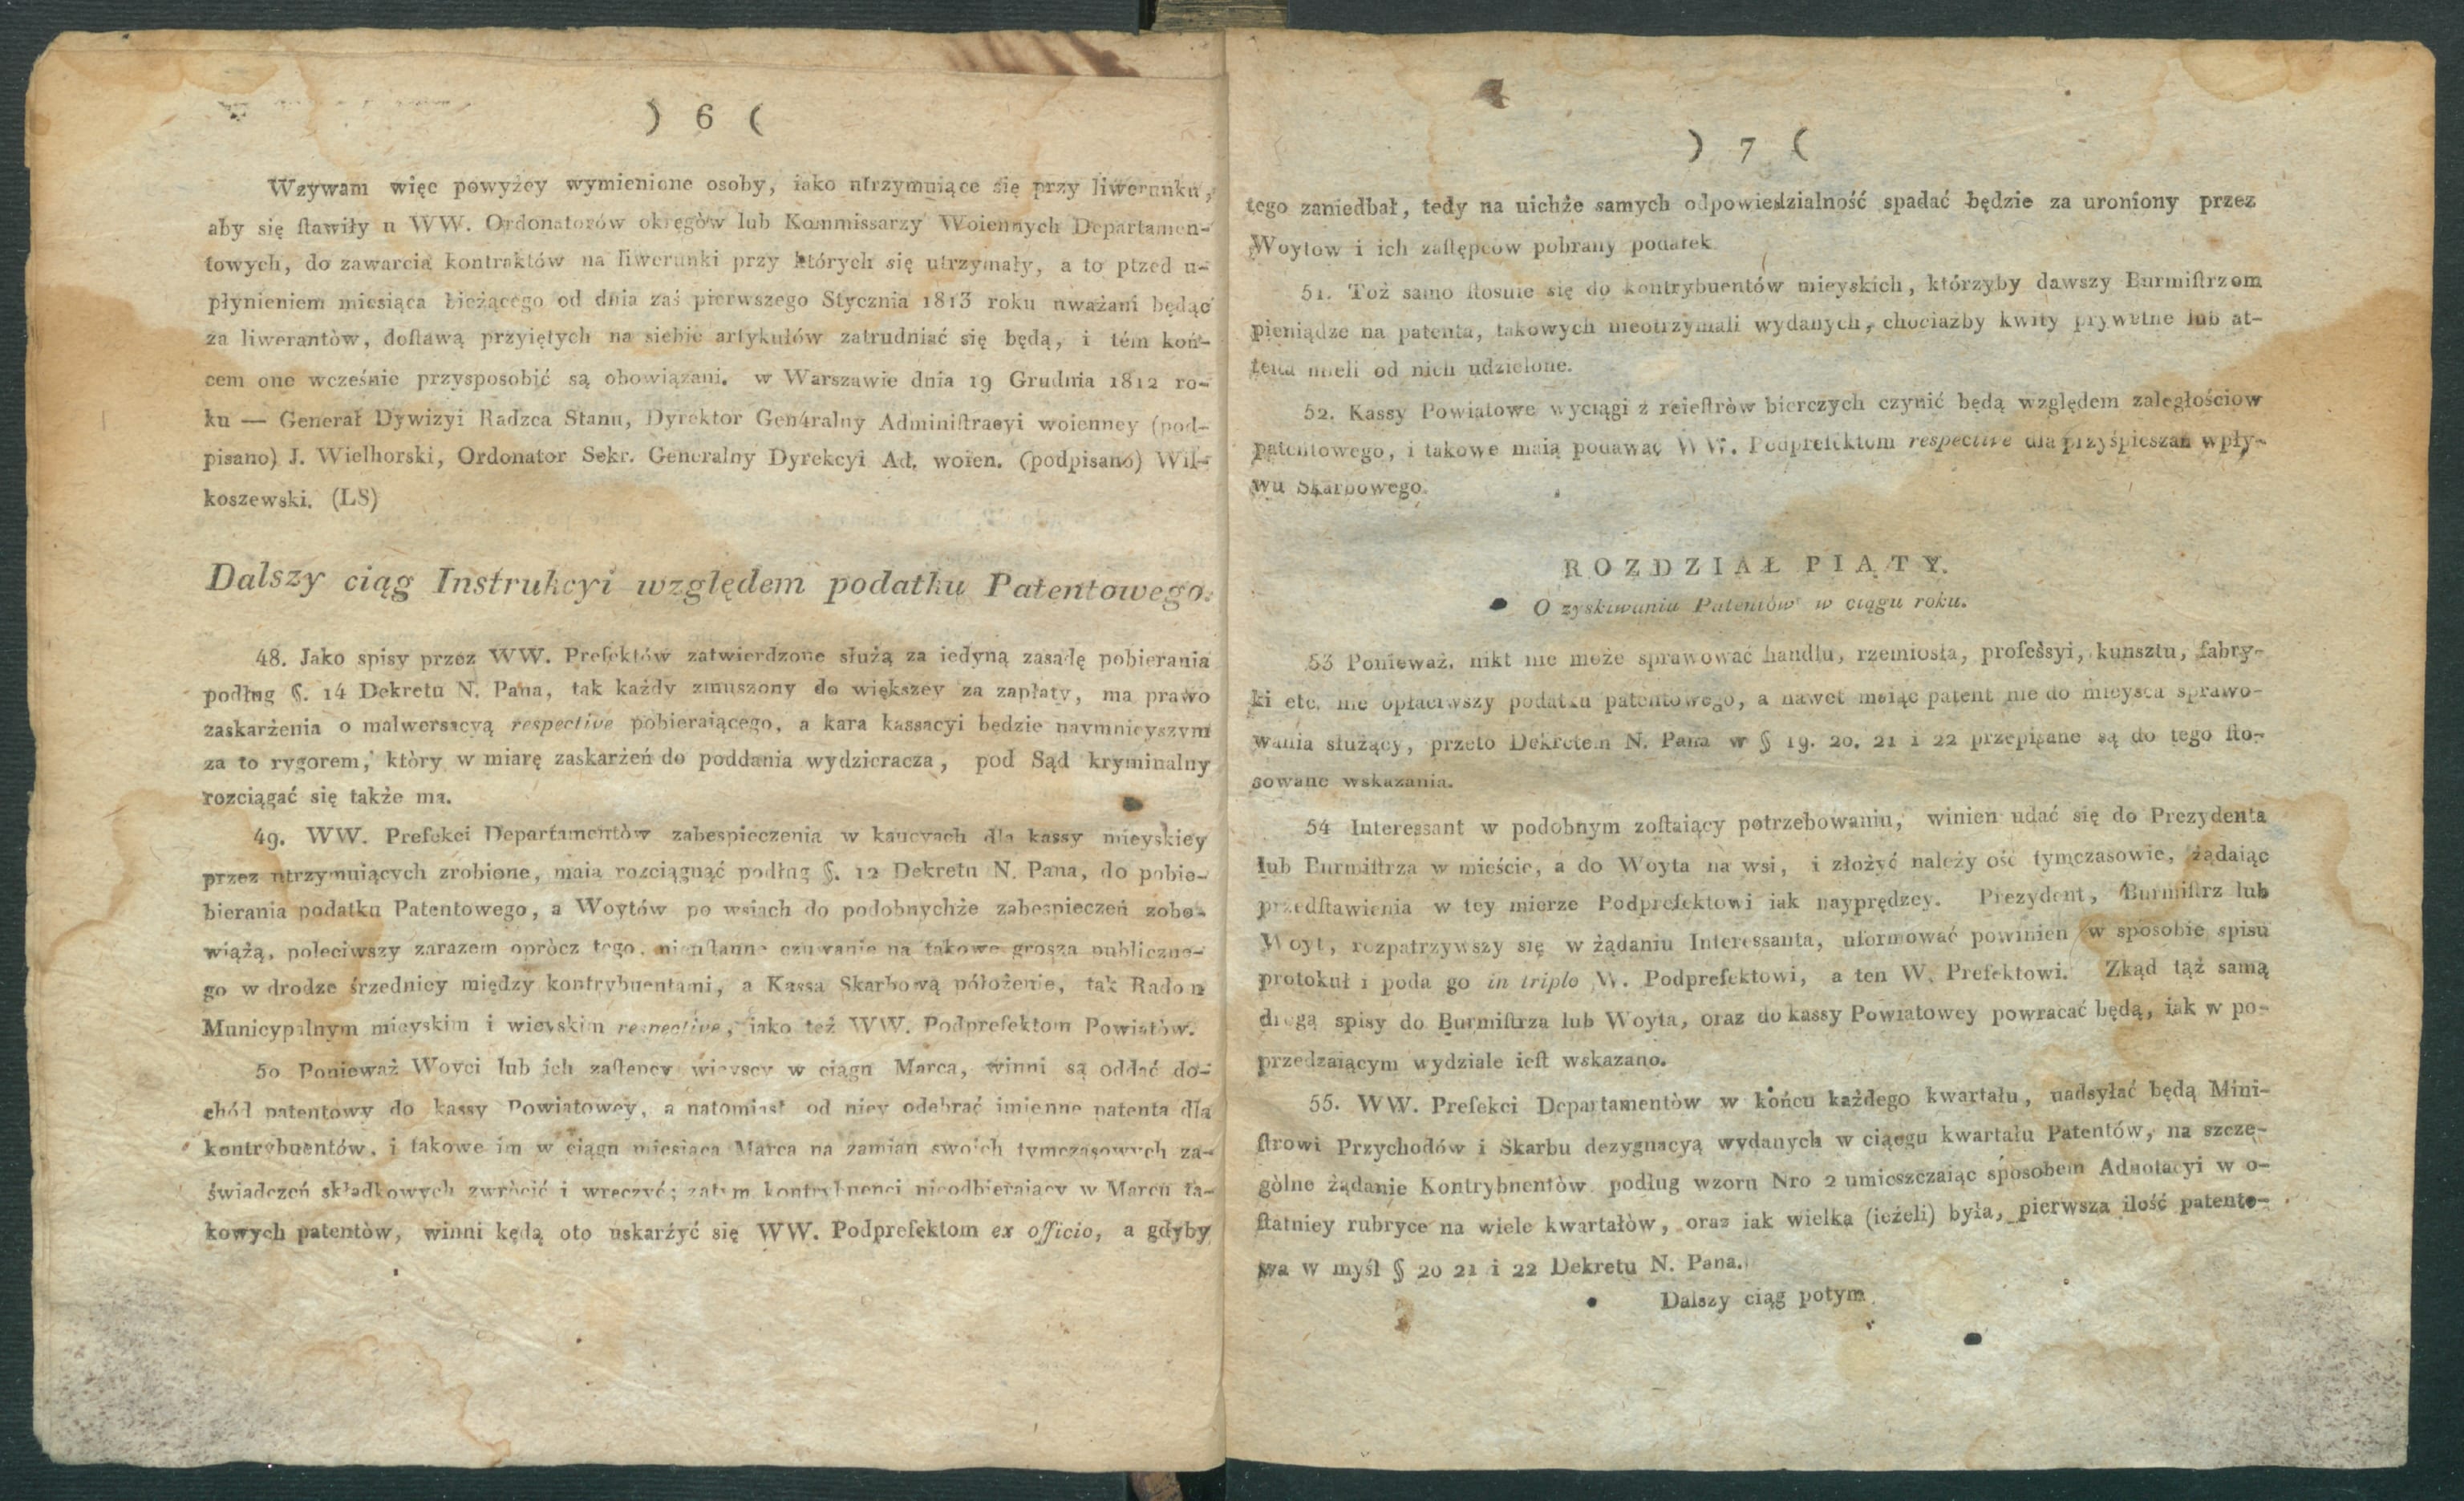 ) 6 (
Wzywam więc powyżey wymienione osoby, iako utrzymuiące się przy liwerunku,
aby się stawiły u WW. Ordonatorów okręgòw lub Kommissarzy Woiennych Departamen-
towych, do zawarcia kontraktów na liwerunki przy których się utrzymały, a to ptzed u-
płynieniem miesiąca bieżącego od dnia zaś pierwszego Stycznia 1813 roku uważani będąc
za liwerantòw, dostawą przyiętych na siebie artykułów zatrudniać się będą, i tém koń-
cem one wcześnie przysposobić są obowiązani. w Warszawie dnia 19 Grudnia 1812 ro-
ku — Generał Dywizyi Radzca Stanu, Dyrektor Gen4ralny Administracyi woienney (pod-
pisano) J. Wielhorski, Ordonator Sekr. Generalny Dyrekcyi Ad. woien. (podpisano) Wil-
koszewski. (LS)
Dalszy ciąg Instrukcyi względem podatku Patentowego.
48. Jako spisy przez WW. Prefektów zatwierdzone służą za iedyną zasadę pobierania
podług §. 14 Dekretu N. Pana, tak każdy zmuszony do większey za zapłaty, ma prawo
zaskarżenia o malwersacyą respective pobieraiącego, a kara kassacyi będzie naymnieyszym
za to rygorem, ktòry w miarę zaskarżeń do poddania wydzieracza, pod Sąd kryminalny
rozciągać się także ma.
49. WW. Prefekci Departamentòw zabespieczenia w kaucyach dla kassy mieyskiey
przez utrzymuiących zrobione, maia rozciągnąć podług §. 12 Dekretu N. Pana, do pobie-
bierania podatku Patentowego, a Woytów po wsiach do podobnychże zabespieczeń zobo-
wiążą, poleciwszy zarazem opròcz tego, nieustanne czuwanie na takowe grosza publiczne-
go w drodze śrzedniey między kontrybuentami, a Kassa Skarbową położenie, tak Radom
Municypalnym mieyskim i wieyskim respective, iako też WW. Podprefektom Powiatòw.
50 Ponieważ Woyci lub ich zastępcy wieyscy w ciągu Marca, winni są oddać do-
chód patentowy do kassy Powiatowey, a natomiast od niey odebrać imienne patenta dla
kontrybuentów, i takowe im w ciągu miesiąca Marca na zamian swoich tymczasowych za-
świadczeń składkowych zwròcić i wręczyć; zatym kontrybuenci nieodbieraiący w Marcu ta-
kowych patentòw, winni kędą oto uskarżyć się WW. Podprefektom ex officio, a gdyby
) 7 (
tego zaniedbał, tedy na uichże samych odpowiedzialność spadać będzie za uroniony przez
Woytow i ich zastępców pobrany podatek
51. Toż samo stosuie się do kontrybuentów mieyskich, którzyby dawszy Burmistrzom
pieniądze na patenta, takowych nieotrzymali wydanych, chociażby kwity prywatne lub at-
testa mieli od nich udzielone.
52. Kassy Powiatowe wyciągi z reiestròw bierczych czynić będą względem zaległościow
patentowego, i takowe maią podawać WW. Podprefektom respective dla przyśpieszań wpły-
wu Skarbowego.
ROZDZIAŁ PIĄTY.
O zyskiwaniu Patentów w ciągu roku.
53 Ponieważ, nikt nie może sprawować handlu, rzemiosła, professyi, kunsztu, fabry-
ki etc. nie opłaciwszy podatku patentowego, a nawet maiąc patent nie do mieysca sprawo-
wania służący, przeto Dekretem N. Pana w § 19. 20. 21 i 22 przepisane są do tego sto-
sowane wskazania.
54 Interessant w podobnym zostaiący potrzebowaniu, winien udać się do Prezydenta
lub Burmistrza w mieście, a do Woyta na wsi, i złożyć należy ość tymczasowie, żądaiąc
przedstawienia w tey mierze Podprefektowi iak nayprędzey. Prezydent, Burmistrz lub
Woyt, rozpatrzywszy się w żądaniu Interessanta, uformować powinien w sposobie spisu
protokuł i poda go in triplo W. Podprefektowi, a ten W. Prefektowi. Zkąd tąż samą
drogą spisy do Burmistrza lub Woyta, oraz do kassy Powiatowey powracać będą, iak w po-
przedzaiącym wydziale iest wskazano.
55. WW. Prefekci Departamentòw w końcu każdego kwartału, nadsyłać będą Mini-
strowi Przychodów i Skarbu dezygnacyą wydanych w ciąegu kwartału Patentów, na szcze-
gòlne żądanie Kontrybnentòw podług wzoru Nro 2 umieszczaiąc sposobem Adnotacyi w o-
statniey rubryce na wiele kwartałòw, oraz iak wielka (ieżeli) była, pierwsza ilość patento-
wa w myśl § 20 21 i 22 Dekretu N. Pana.
Dalszy ciąg potym